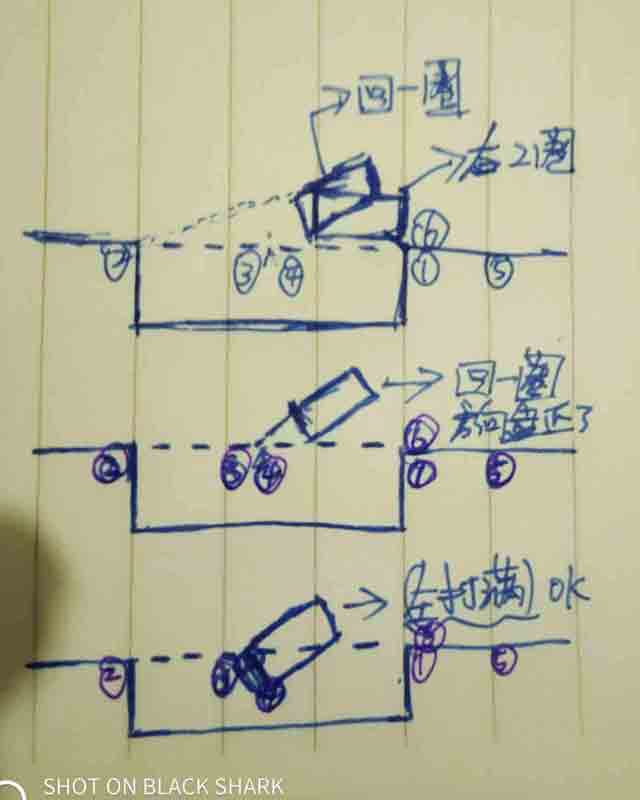 回一圈
右2圈
② ③ ④ ⑥
① ⑤
回一圈
方向盘正了
② ③ ④ ⑥
① ⑤
左打满 OK
② ③ ④ ⑥
① ⑤
SHOT ON BLACK SHARK